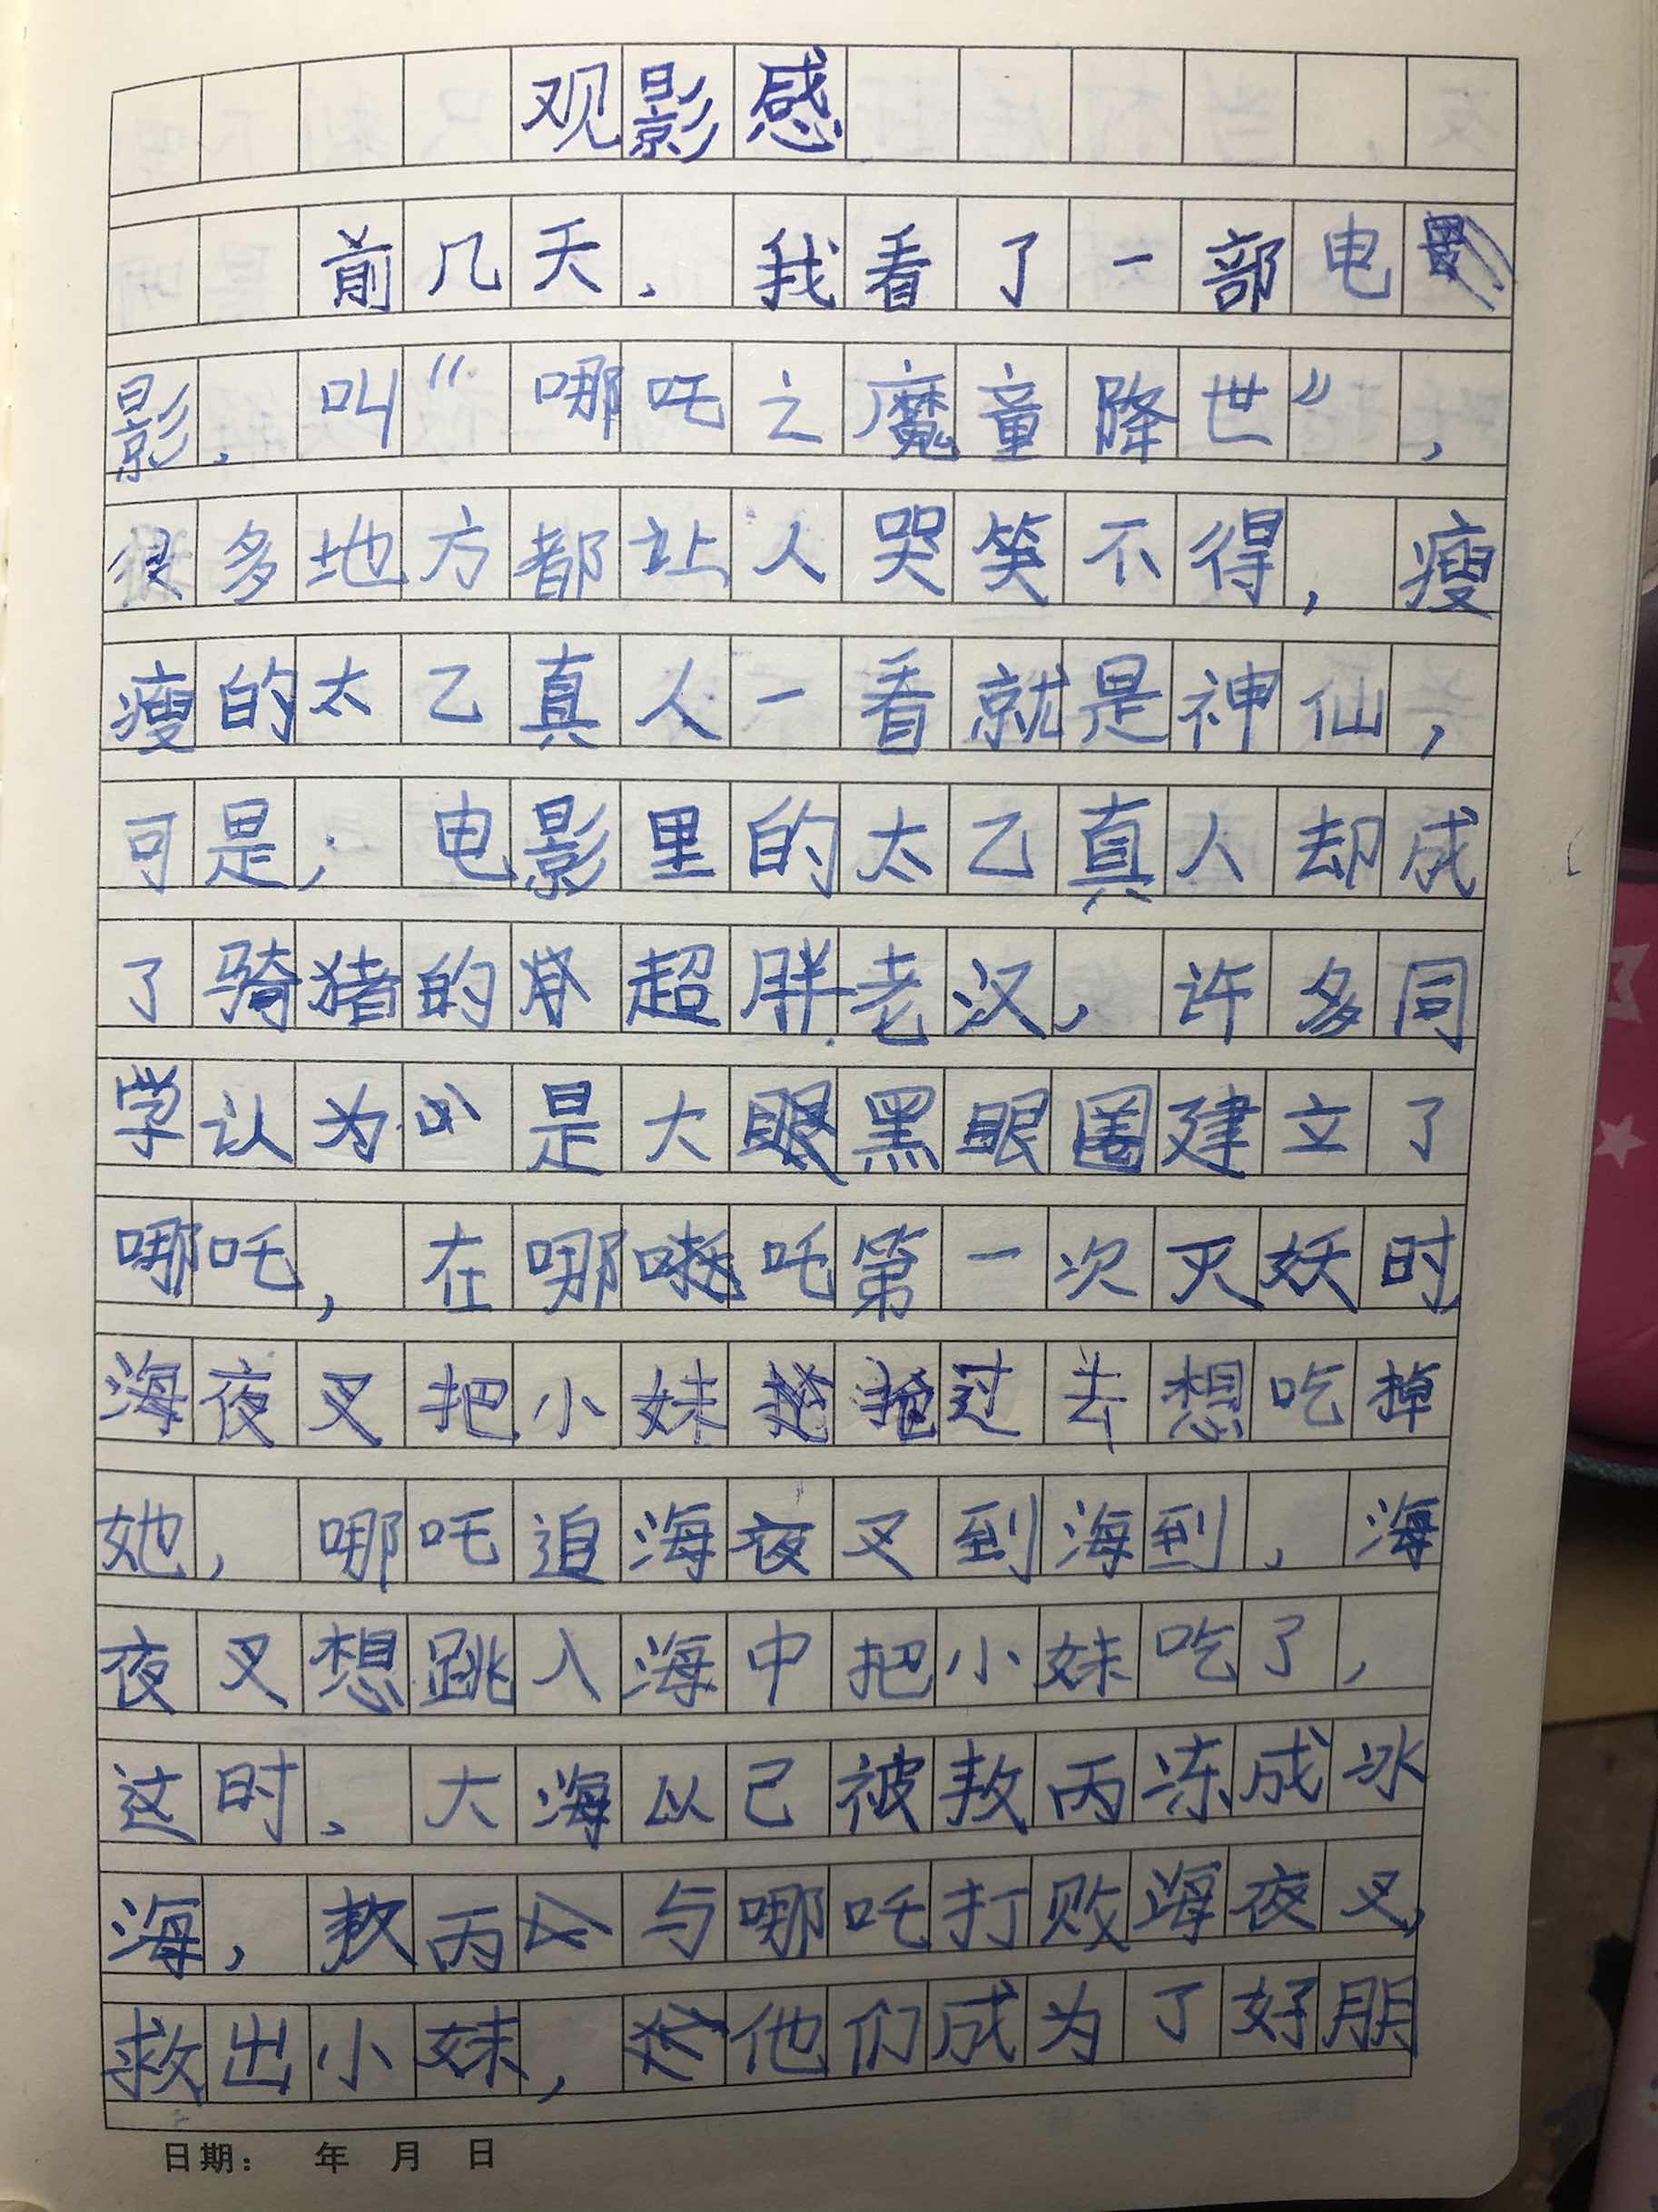 观影感
前几天，我看了一部电
影，叫“哪吒之魔童降世”，
很多地方都让人哭笑不得，瘦
瘦的太乙真人一看就是神仙，
可是，电影里的太乙真人却成
了骑猪的超胖老汉，许多同
学认为是大眼黑眼圈建立了
哪吒，在哪吒第一次灭妖时
海夜叉把小妹抢过去想吃掉
她，哪吒追海夜叉到海到，海
夜叉想跳入海中把小妹吃了，
这时、大海以己被敖丙冻成冰
海，敖丙与哪吒打败海夜叉，
救出小妹，他们成为了好朋
日期：　年　月　日